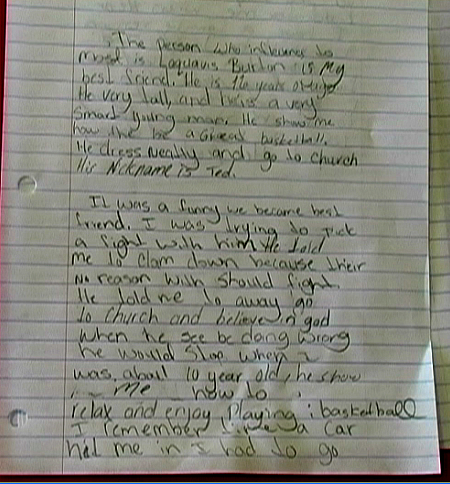 The person who influences to
most is Laquavis Burton is My
best friend. He is 16 years of age
He very tall and he is a very
Smart young man. He show me
how the be a Great basketball.
He dress Neatly and go to church
His Nickname is Ted.
It was a funny we became best
friend. I was trying to pick
a fight with him He told
me to clam down because their
No reason with should fight.
He told me to away go
to church and believe in god
when he see be doing wrong
he would stop when I
was about 10 year old, he show
me how to
relax and enjoy Playing basketball
I remember time a car
hit me in I had to go